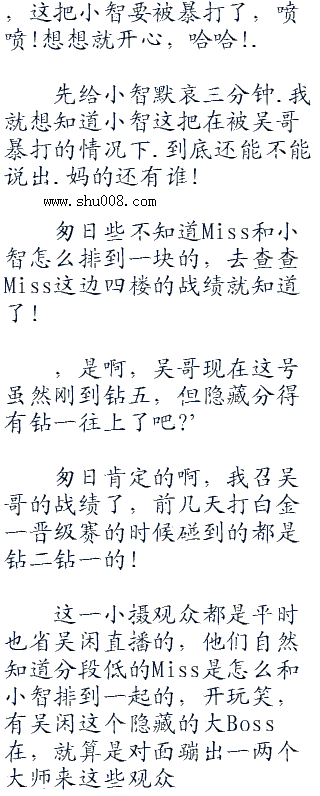 ，这把小智要被暴打了，喷
喷!想想就开心，哈哈!.
先给小智默哀三分钟.我
就想知道小智这把在被吴哥
暴打的情况下.到底还能不能
说出.妈的还有谁!
www.shu008.com
匆日些不知道Miss和小
智怎么排到一块的，去查查
Miss这边四楼的战绩就知道
了!
，是啊，吴哥现在这号
虽然刚到钻五，但隐藏分得
有钻一往上了吧?'
匆日肯定的啊，我召吴
哥的战绩了，前几天打白金
一晋级赛的时候碰到的都是
钻二钻一的!
这一小摄观众都是平时
也省吴闲直播的，他们自然
知道分段低的Miss是怎么和
小智排到一起的，开玩笑，
有吴闲这个隐藏的大Boss
在，就算是对面蹦出一两个
大师来这些观众